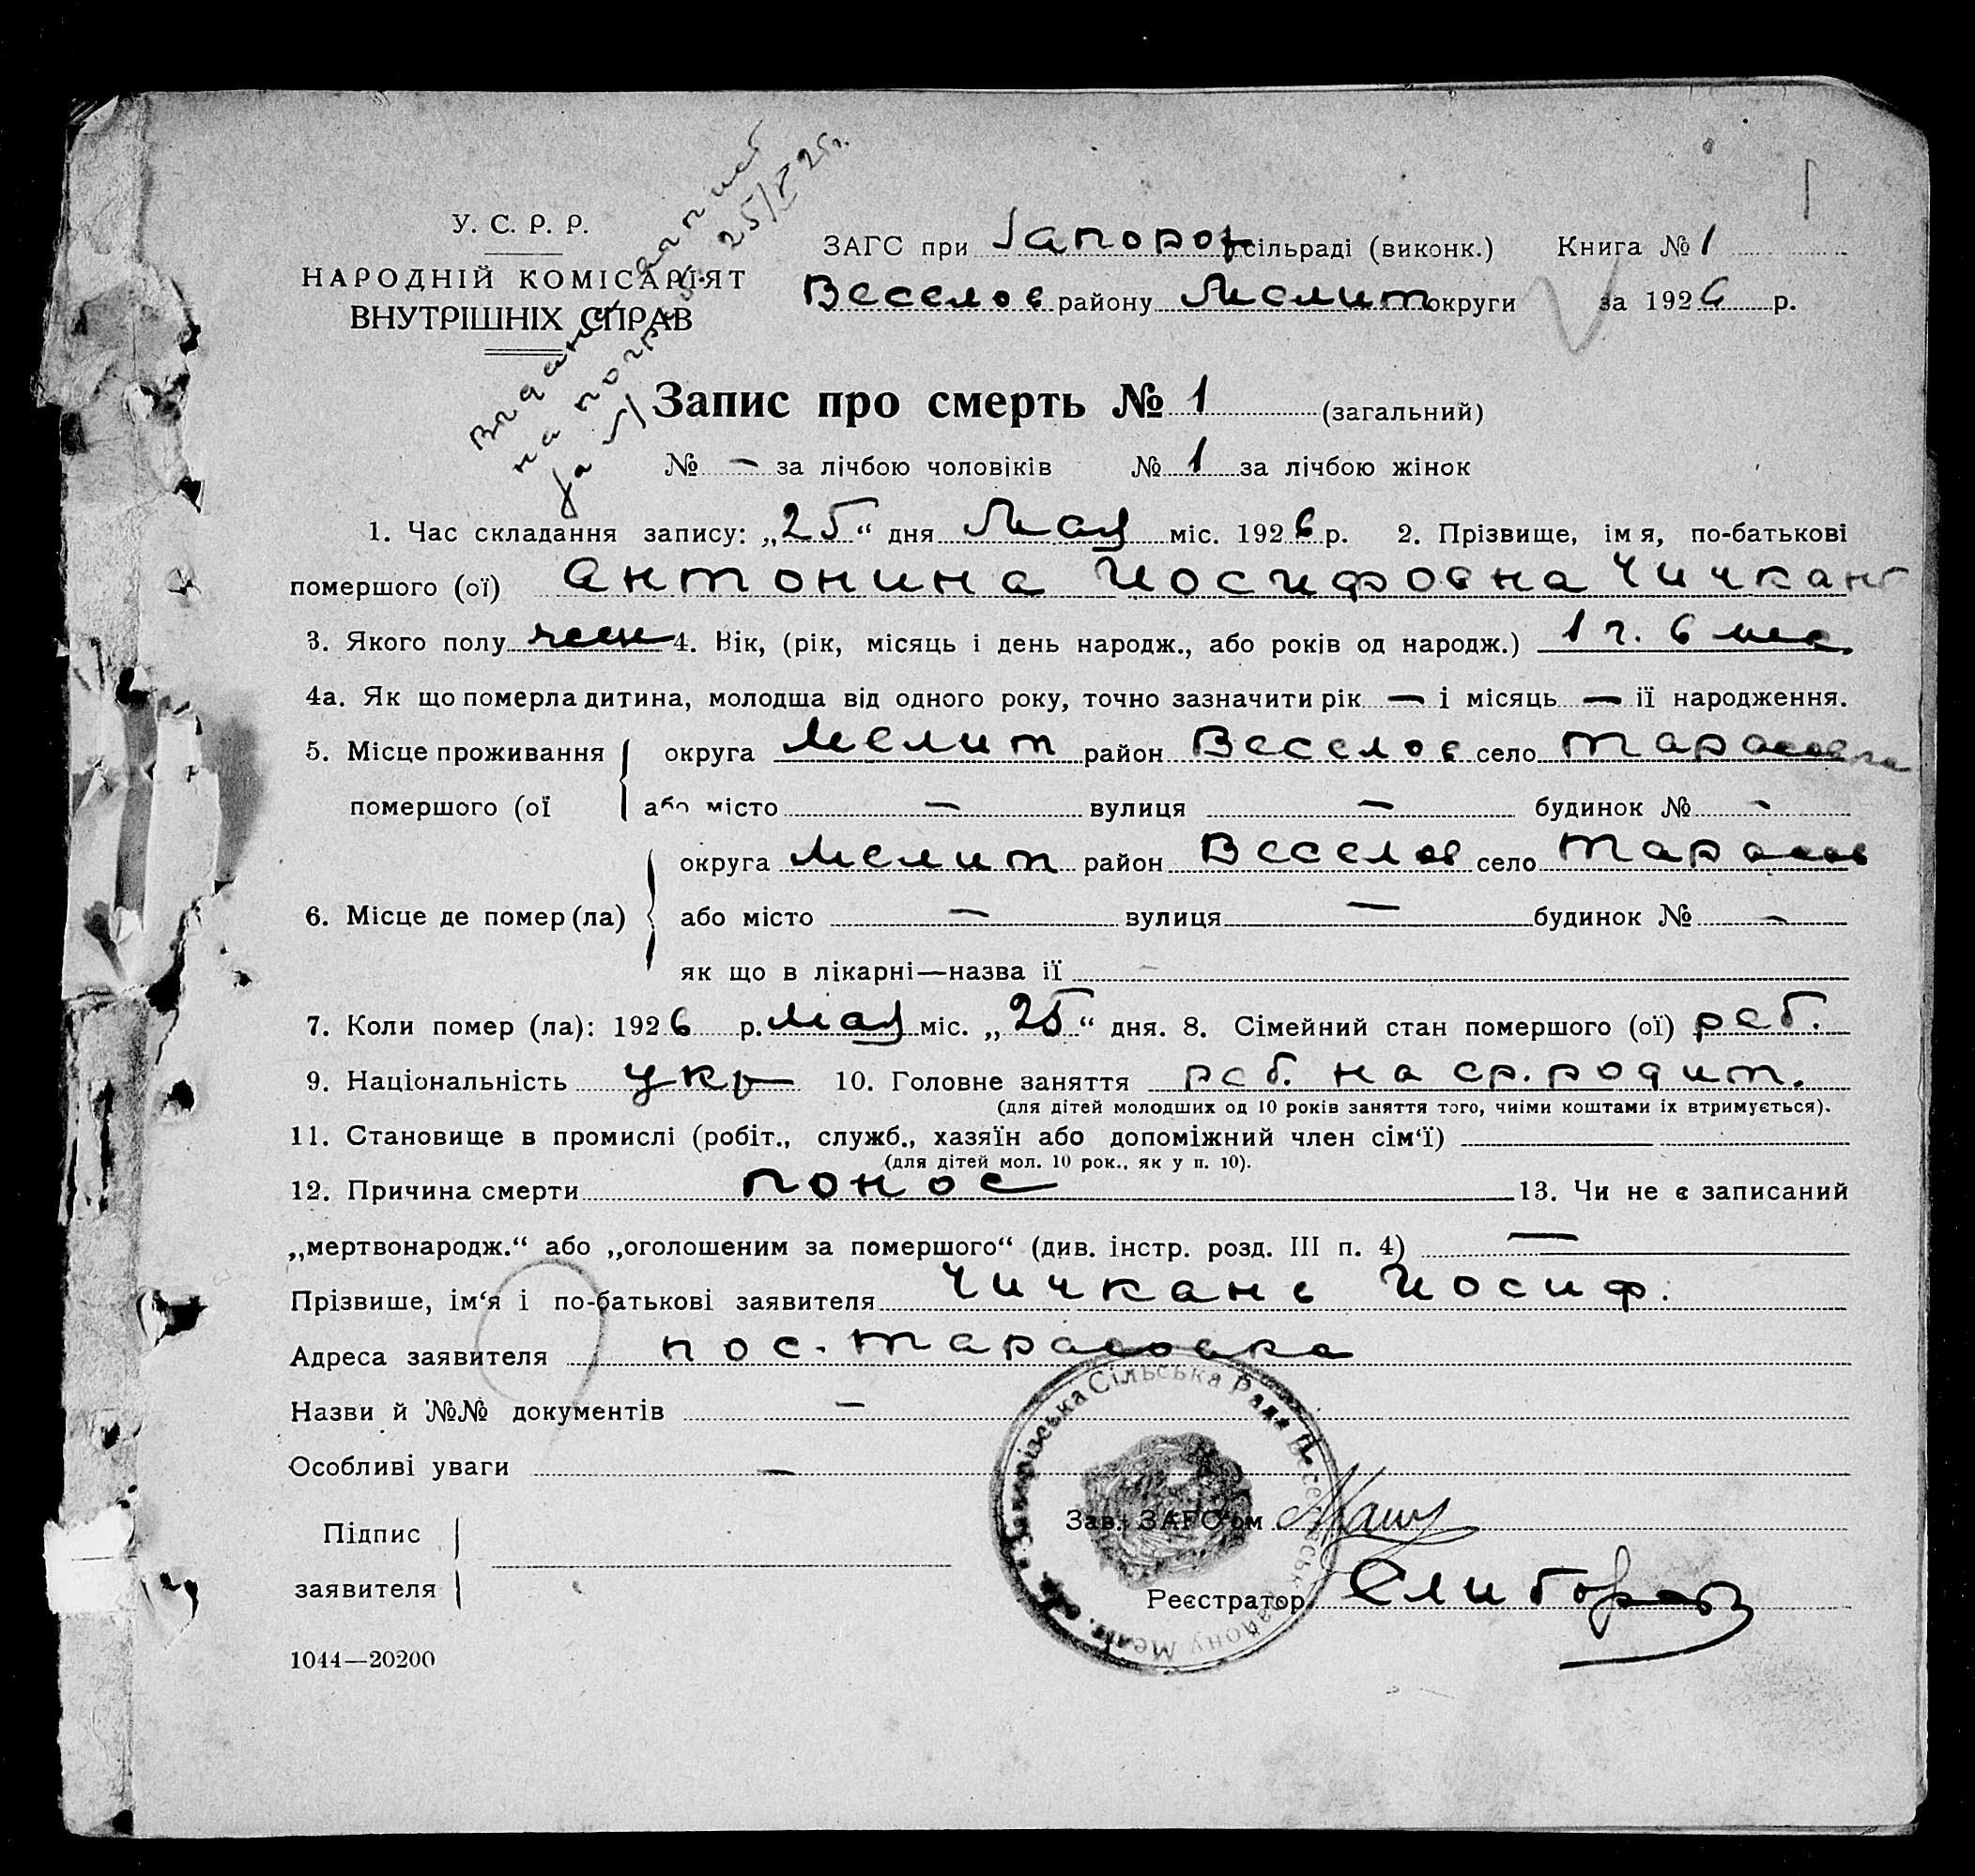 У. С. Р. Р.
НАРОДНІЙ КОМІСАРІЯТ
ВНУТРІШНІХ СПРАВ
ЗАГС при Запорож сільраді (виконк.) Книга № 1
Веселов району Мелит округи за 1926 р.
на
за № 1 25/V 26г.
Запис про смерть № 1 (загальний)
№ — за лічбою чоловіків № 1 за лічбою жінок
1. Час складання запису: „25“ дня Мая міс. 1926 р. 2. Прізвище, імя, по-батькові
помершого (ої) Антонина Иосифовна Чичкань
3. Якого полу жен 4. Вік, (рік, місяць і день народж., або років од народж.) 1 г. 6 мес.
4а. Як що померла дитина, молодша від одного року, точно зазначити рік — і місяць — її народження.
5. Місце проживання помершого (ої округа Мелит район Веселов село Тарасовка
або місто — вулиця — будинок № -
6. Місце де помер (ла) округа Мелит район Веселов село Тарасов
або місто — вулиця — будинок № -
як що в лікарні—назва її
7. Коли помер (ла): 1926 р. мая міс. „25“ дня. 8. Сімейний стан помершого (ої) реб.
9. Національність укр 10. Головне заняття реб. на ср. родит.
(для дітей молодших од 10 років заняття того, чиїми коштами їх втримується).
11. Становище в промислі (робіт., служб., хазяїн або допоміжний член сім‘ї)
(для дітей мол. 10 рок., як у п. 10).
12. Причина смерти понос 13. Чи не є записаний
„мертвонародж.“ або „оголошеним за помершого“ (див. інстр. розд. III п. 4) —
Прізвише, ім‘я і по-батькові заявителя Чичкань Иосиф.
Адреса заявителя пос. Тарасовка
Назви й №№ документів —
Особливі уваги —
Запорізська Сільська Рада Веселівськ. району Меліт. окр.
Підпис
заявителя
Зав. ЗАГС‘ом
Реєстратор
1044—20200